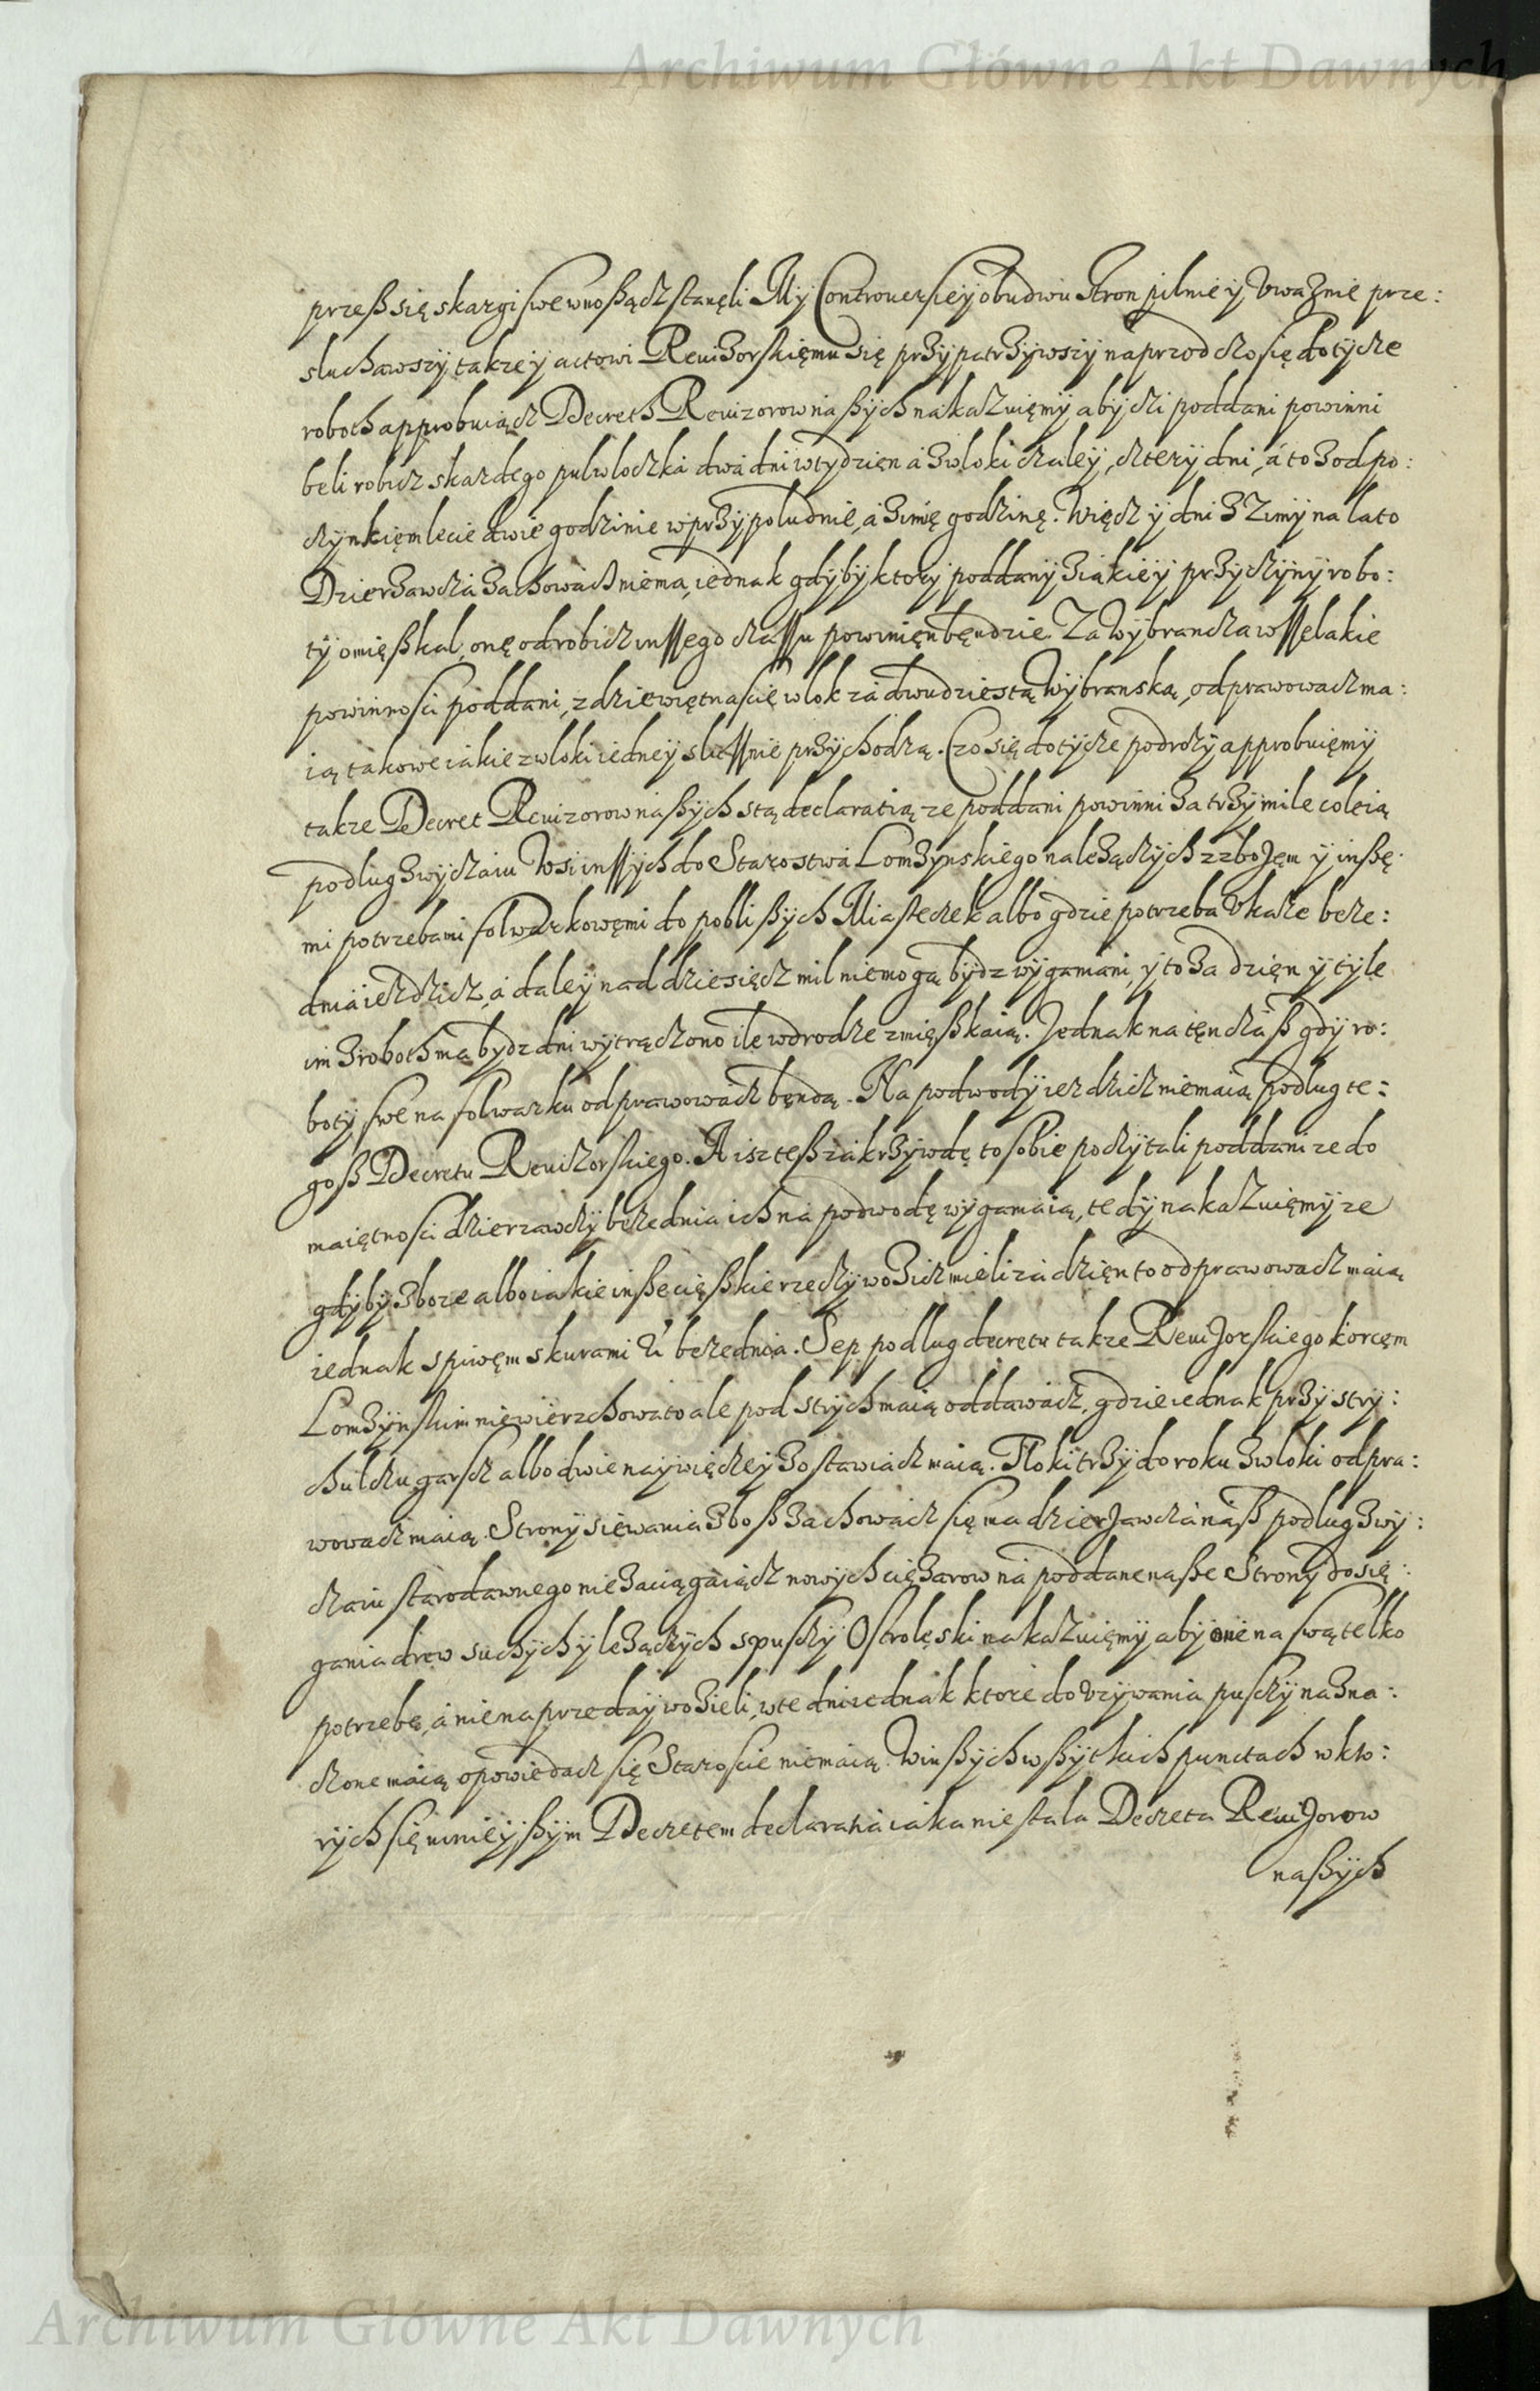 Archiwum Główne Akt Dawnych
przeß się skargi swe wnoßącz stanęli My Controuersiey obudwu Stron pilnie y Vwaznie prze:
sluchawszy takze y actowi Reuizorskięmu się przypatrzywszy naprzod czo się dotycze
roboth approbuiącz Decreth Reuizorow naßych nakazuięmy aby czi poddani powinni
beli robicz s kazdego pulwloczka dwa dni w tydzięn a z wloki czaley, cztery dni, a to z odpo:
czynkięm lecie dwie godzinie w przypoludnie, a zimię godzinę. Więcz y dni z Zimy na lato
Dzierzawcza zachowacz niema, iednak gdyby ktory poddany z iakiey przyczyny robo:
ty omięßkal, onę odrobicz inssego czassu powinięn będzie. Za Wybrancza wsselakie
powinnosci poddani, z dziewiętnascie wlok za dwudziestą Wybranską, odprawowacz ma:
ią takowe iakie z wloki iedney slussnie przychodzą. Czo się dotycze podrozy approbuięmy
takze Decret Reuizorow naßych s tą declaratią ze poddani powinni za trzy mile coleią
podlug zwyczaiu Wsi inssych do Starostwa Lomzynskiego nalezączych z zbozem y inßę:
mi potrzebami folwarkowęmi do poblißych Miasteczek albo gdzie potrzeba Vkaze beze:
dnia iezdzicz, a daley nad dziesięcz mil niemogą bydz wyganiani, y to za dzięn y tyle
im z roboth ma bydz dni wytrączono ile w drodze zmięßkaią. Jednak na tęn czaß gdy ro:
boty swe na folwarku odprawowacz będą. Na podwody iezdzicz niemaią podlug te:
goß Decretu Reuizorskiego. A isz teß za krzywdę to sobie poczytali poddani ze do
maiętnosci dzierzawczy bezednia ich na podwodę wyganiaią, tedy nakazuięmy ze
gdyby zboze albo iakie inße cięßkie rzeczy wozicz mieli za dzięn to odprawowacz maią
iednak s piwęm skurami &c bezednia. Sep podlug decretu takze Reuizorskiego korcęm
Lomzynskim niewierzchowato ale pod strych maią oddawacz, gdzie iednak przy stry:
chulczu garscz albo dwie naywięczey zostawiacz maią. Tloki trzy do roku z wloki odpra:
wowacz maią. Strony siewania zboß zachowacz się ma dzierzawcza naß podlug zwy:
czaiu starodawnego nie zaciągaiącz nowych cięzarow na poddane naße Strony dosię:
gania drew suchych y lezączych s puszczy Ostrolęski nakazuięmy aby one na swą telko
potrzebę, a nie na przeday wozieli, w te dni iednak ktore do vzywania puszczy nazna:
czone maią opowiedacz się Staroscie niemaią. W inßych wßytkich punctach w kto:
rych się ninieyßym Decretem declaratia iaka nie stala Decreta Reuizorow
naßych
Archiwum Główne Akt Dawnych